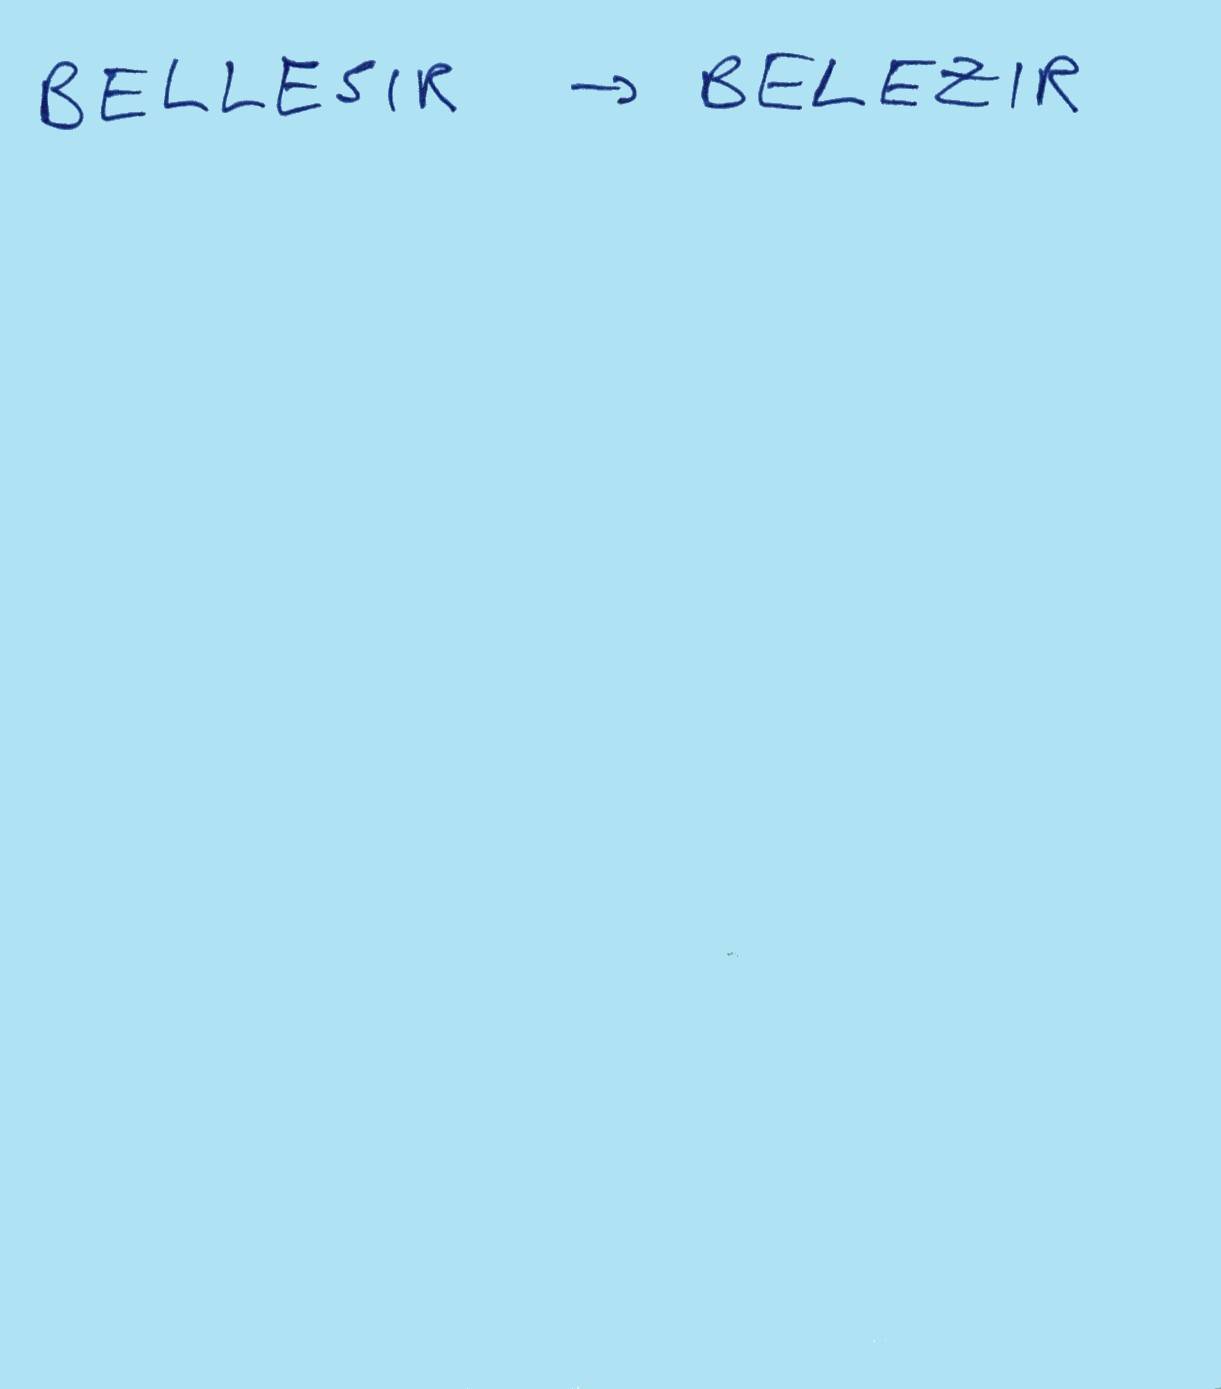 BELLESIR → BELEZIR